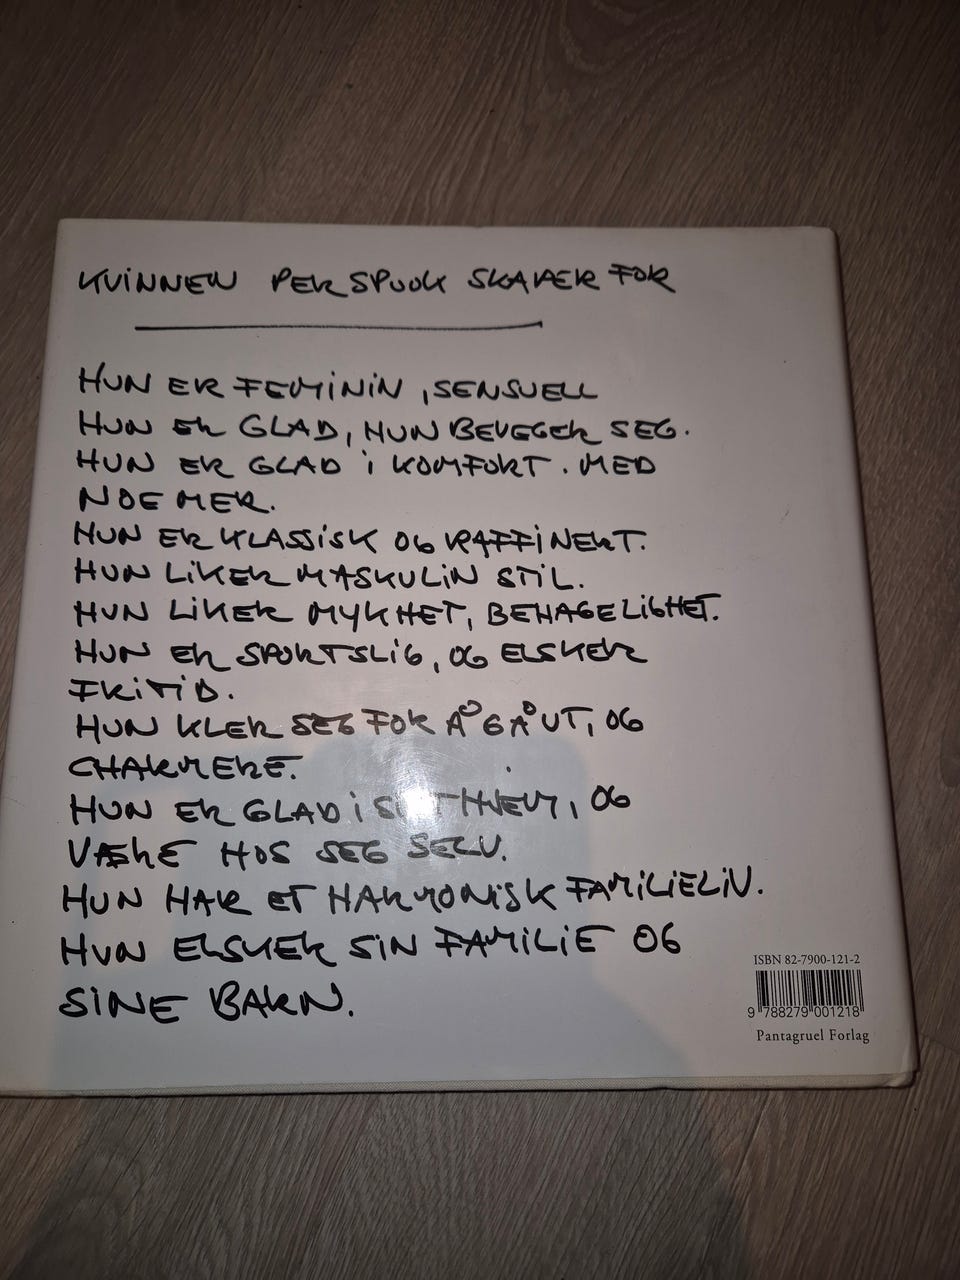 KVINNEN PER SPOOK SKAPER FOR
HUN ER FEMININ, SENSUELL
HUN ER GLAD, HUN BEVEGER SEG.
HUN ER GLAD i KOMFORT. MED
NOE MER.
HUN ER KLASSISK OG RAFFINERT.
HUN LIKER MASKULIN STIL.
HUN LIKER MYKHET, BEHAGELIGHET.
HUN ER SPORTSLIG, OG ELSKER
FRITID.
HUN KLER SEG FOR Å GÅ UT, OG
CHARMERE.
HUN ER GLAD i HJEM, OG
VÆRE HOS SEG SELV.
HUN HAR ET HARMONISK FAMILIELIV.
HUN ELSKER SIN FAMILIE OG
SINE BARN.
ISBN 82-7900-121-2
9 788279 001218
Pantagruel Forlag